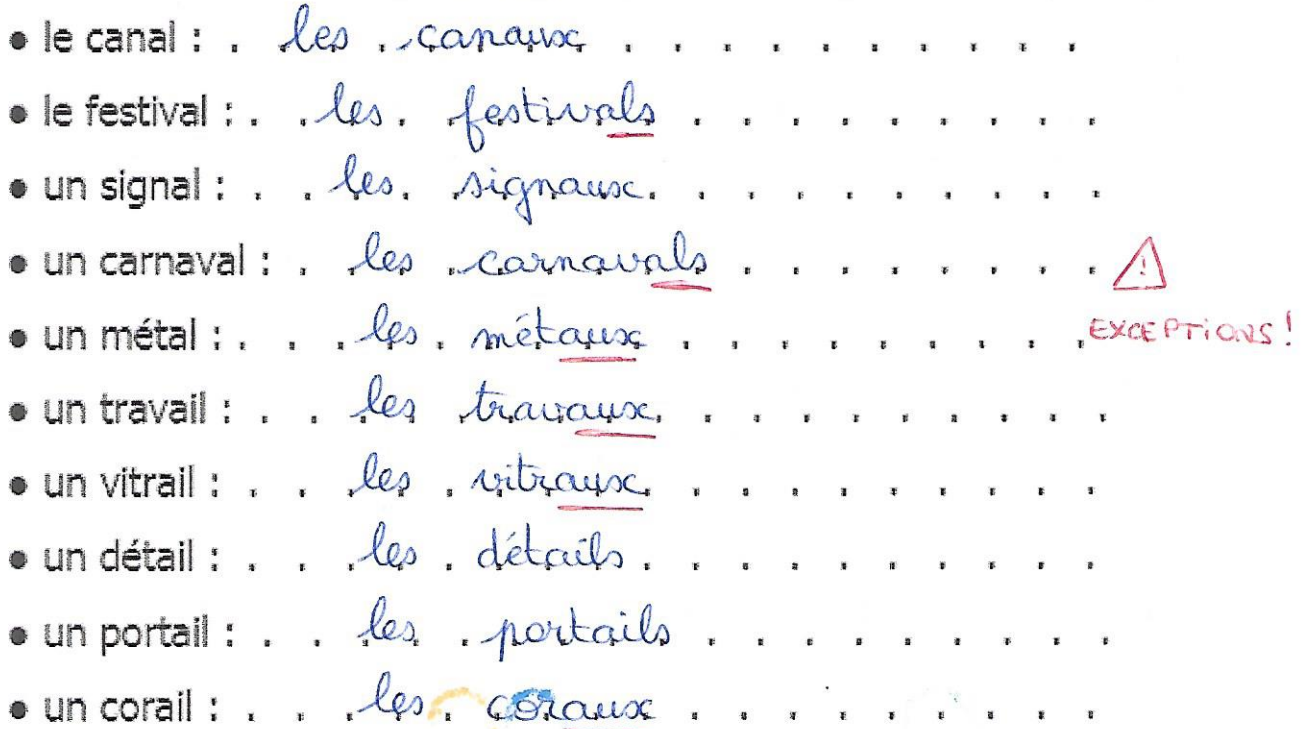 • le canal : les canaux
• le festival : les festivals
• un signal : les signaux
• un carnaval : les carnavals
EXCEPTIONS!
• un métal : les métaux
• un travail : les travaux
• un vitrail : les vitraux
• un détail : les détails
• un portail : les portails
• un corail : les coraux